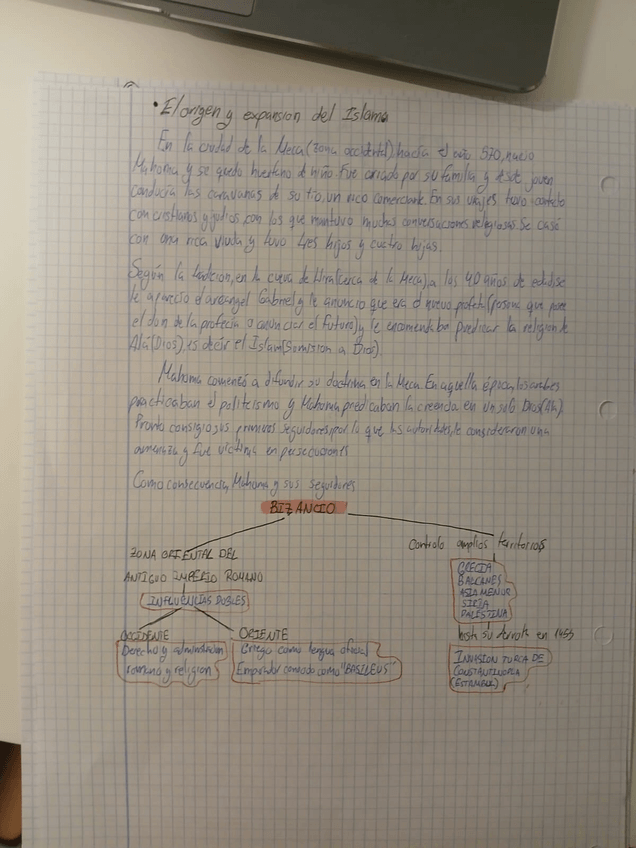 • El origen y expansion del Islam
En la ciudad de la Meca (zona occidental), hacia el año 570, nacio
Mahoma y se quedo huerfano de niño fue criado por su familia y desde joven
conducia las caravanas de su tio, un rico comerciante. En sus viajes tuvo contacto
con cristianos y judios, con los que mantuvo muchas conversaciones religiosas. Se casó
con una rica viuda, y tuvo tres hijos y cuatro hijas.
Según la tradicion, en la cueva de Hira (cerca de la Meca) a los 40 años de edad se
le aparecio el arcangel Gabriel y le anuncio que era el nuevo profeta (persona que posee
el don de la profecia o anunciar el futuro) y le encomendaba predicar la religion de
Alá (Dios), es decir el Islam (Sumision a Dios).
Mahoma comenzó a difundir su doctrina en la Meca. En aquella época los arabes
practicaban el politeismo y Mahoma predicaban la creencia en un solo Dios (Alá).
Pronto consigio sus primeros seguidores, por lo que las autoridades, le consideraron una
amenaza y fue victima en persecuciones
Como consecuencia, Mahoma y sus seguidores
BIZANCIO
ZONA ORIENTAL DEL
ANTIGUO IMPERIO ROMANO
INFLUENCIAS DOBLES
OCCIDENTE
Derecho y administracion
romano y religion
ORIENTE
Griego como lengua oficial
Emperador conocido como "BASILEUS"
Controlo amplios territorios
GRECIA
BALCANES
ASIA MENOR
SIRIA
PALESTINA
hasta su derrota en 1453
INVASION TURCA DE
CONSTANTINOPLA
(ESTAMBUL)